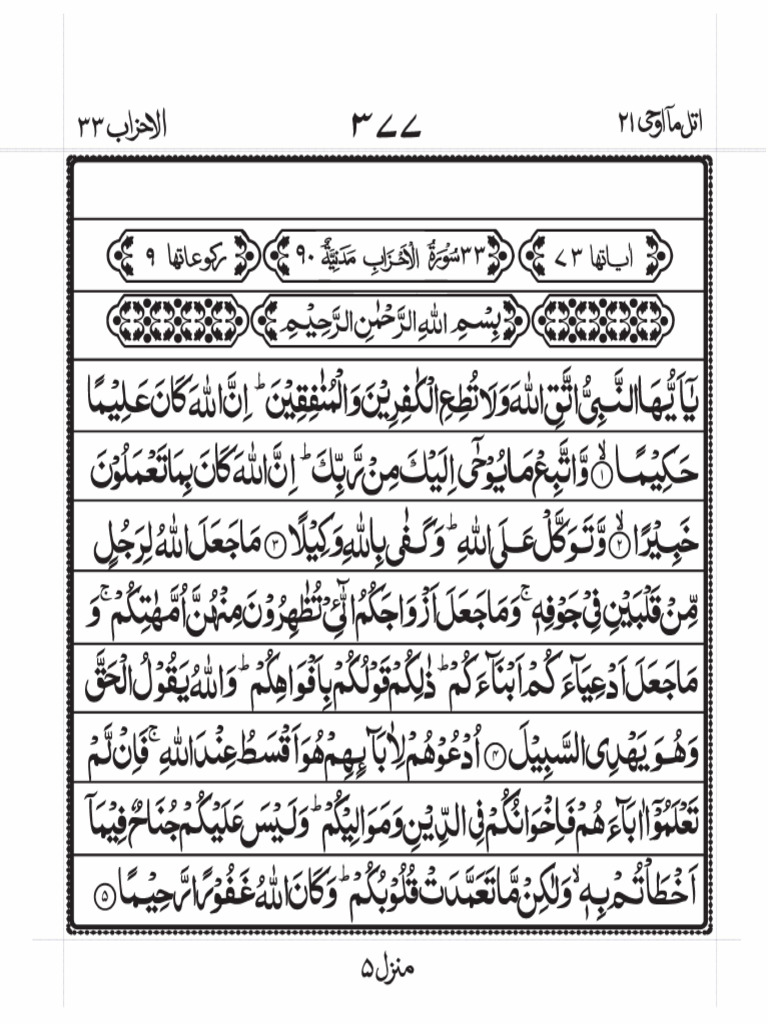 اتل مآ اوحی ۲۱ ۳۷۷ الاحزاب ۳۳
اٰیاتها ۷۳ ۳۳ سُوْرَةُ الْاَحْزَابِ مَدَنِیَّةٌ ۹۰ رکوعاتها ۹
بِسْمِ اللّٰهِ الرَّحْمٰنِ الرَّحِیْمِ
یٰۤاَیُّهَا النَّبِیُّ اتَّقِ اللّٰهَ وَلَا تُطِعِ الْكٰفِرِیْنَ وَالْمُنٰفِقِیْنَ ؕ اِنَّ اللّٰهَ كَانَ عَلِیْمًا
حَكِیْمًا ۙ﴿۱﴾ وَّاتَّبِعْ مَا یُوْحٰۤی اِلَیْكَ مِنْ رَّبِّكَ ؕ اِنَّ اللّٰهَ كَانَ بِمَا تَعْمَلُوْنَ
خَبِیْرًا ۙ﴿۲﴾ وَّتَوَكَّلْ عَلَی اللّٰهِ ؕ وَكَفٰی بِاللّٰهِ وَكِیْلًا ﴿۳﴾ مَا جَعَلَ اللّٰهُ لِرَجُلٍ
مِّنْ قَلْبَیْنِ فِیْ جَوْفِهٖ ۚ وَمَا جَعَلَ اَزْوَاجَكُمُ الّٰٓـِٔیْ تُظٰهِرُوْنَ مِنْهُنَّ اُمَّهٰتِكُمْ ۚ وَ
مَا جَعَلَ اَدْعِیَآءَكُمْ اَبْنَآءَكُمْ ؕ ذٰلِكُمْ قَوْلُكُمْ بِاَفْوَاهِكُمْ ؕ وَاللّٰهُ یَقُوْلُ الْحَقَّ
وَهُوَ یَهْدِی السَّبِیْلَ ﴿۴﴾ اُدْعُوْهُمْ لِاٰبَآىِٕهِمْ هُوَ اَقْسَطُ عِنْدَ اللّٰهِ ۚ فَاِنْ لَّمْ
تَعْلَمُوْۤا اٰبَآءَهُمْ فَاِخْوَانُكُمْ فِی الدِّیْنِ وَمَوَالِیْكُمْ ؕ وَلَیْسَ عَلَیْكُمْ جُنَاحٌ فِیْمَاۤ
اَخْطَاْتُمْ بِهٖ ۙ وَلٰكِنْ مَّا تَعَمَّدَتْ قُلُوْبُكُمْ ؕ وَكَانَ اللّٰهُ غَفُوْرًا رَّحِیْمًا ﴿۵﴾
منزل ۵